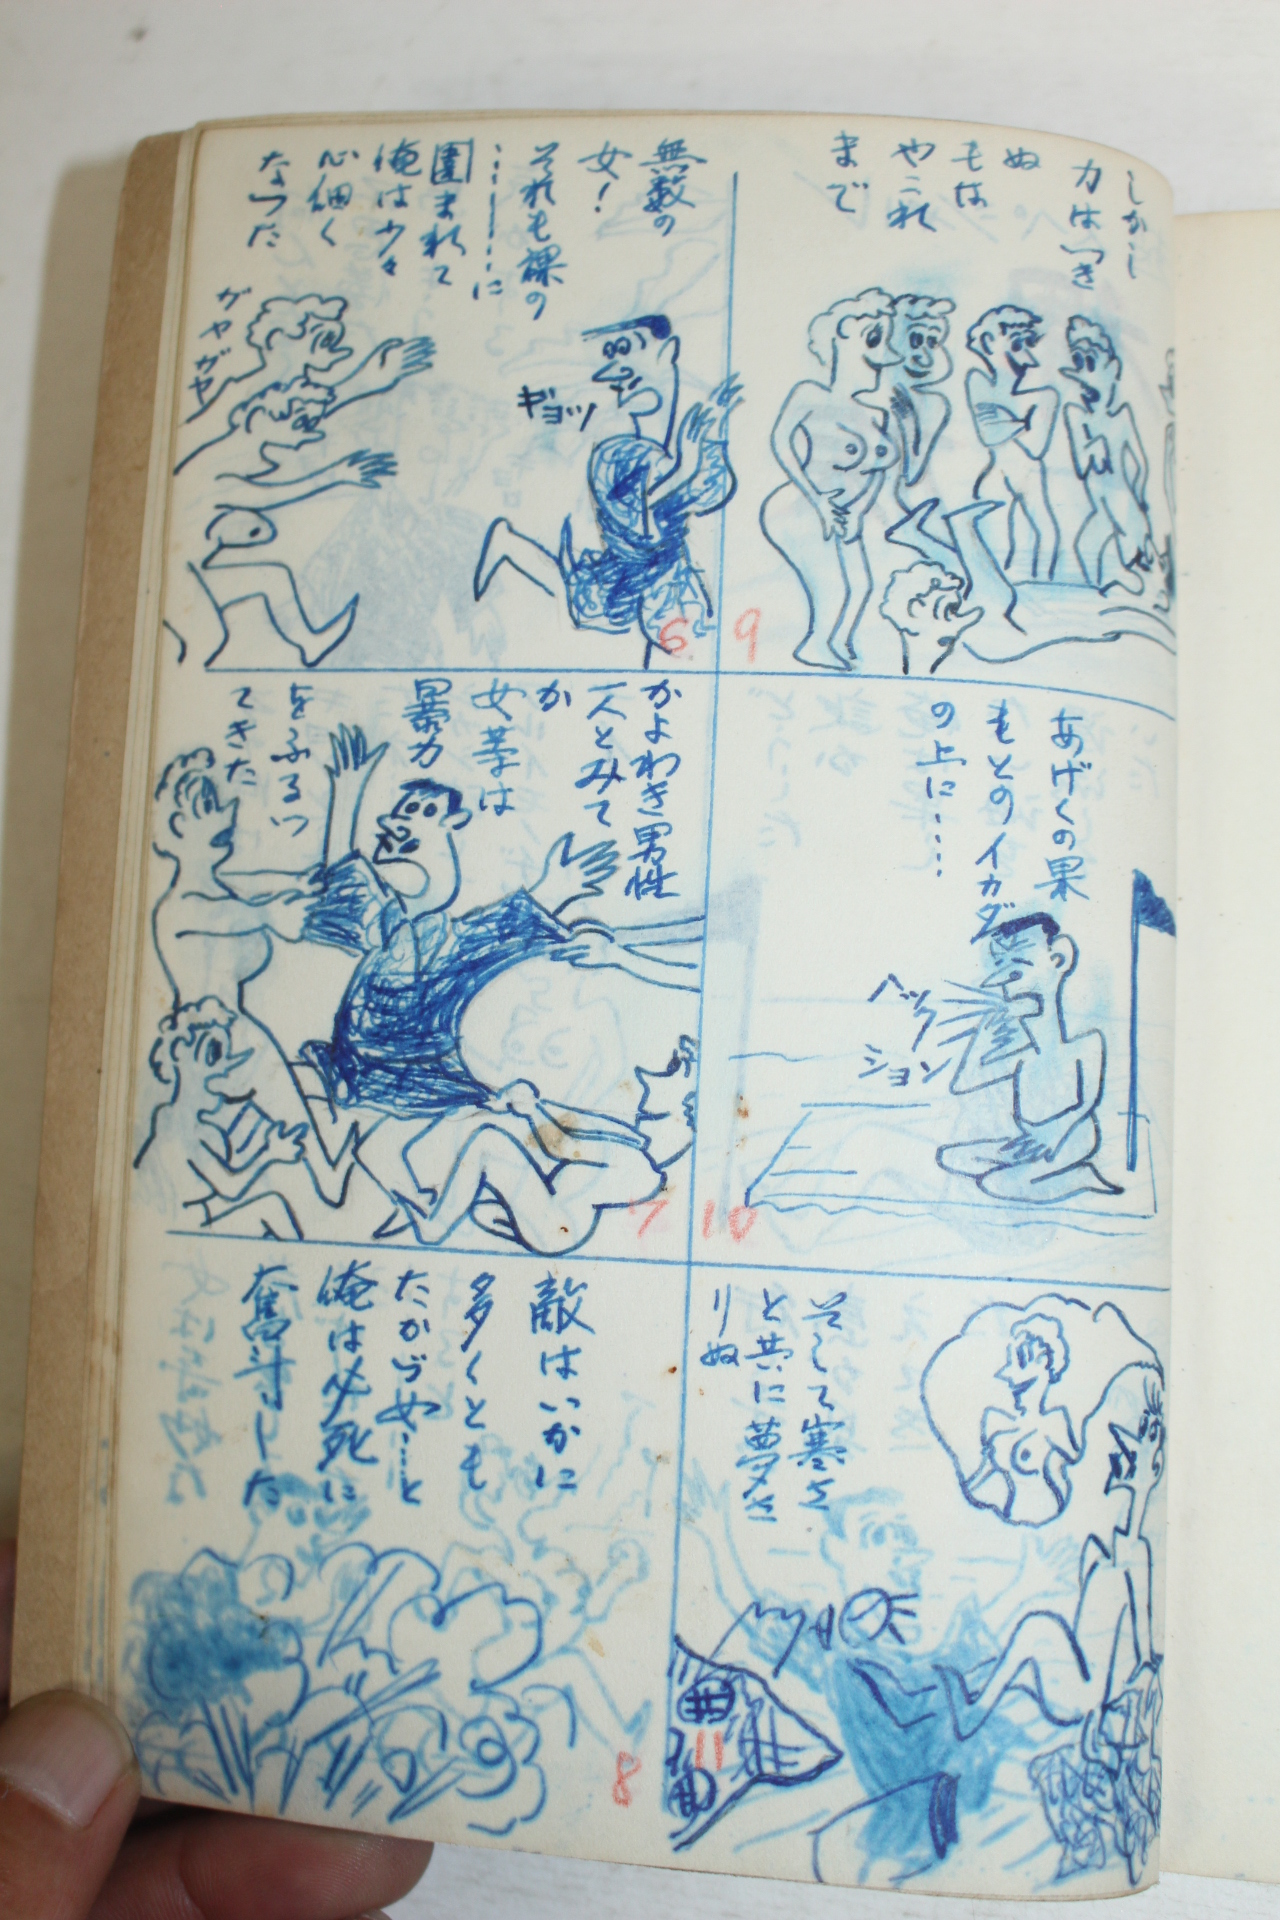 無数の
女!
それも裸の
………に
囲まれて
俺は少々
心細く
なつた
ギョッ
ガヤガヤ
6
かよわき男性
一人とみて
か
女草は
暴力
をふるつ
てきた
7
敵はいかに
多くとも
たかゞ女……と
俺は必死に
奮斗した
8
しかし
力はつき
ぬ
もは
やこれ
まで
9
あげくの果
もとのイカダ
の上に……
ヘック
ション
10
そして寒さ
と共に夢さ
りぬ
11